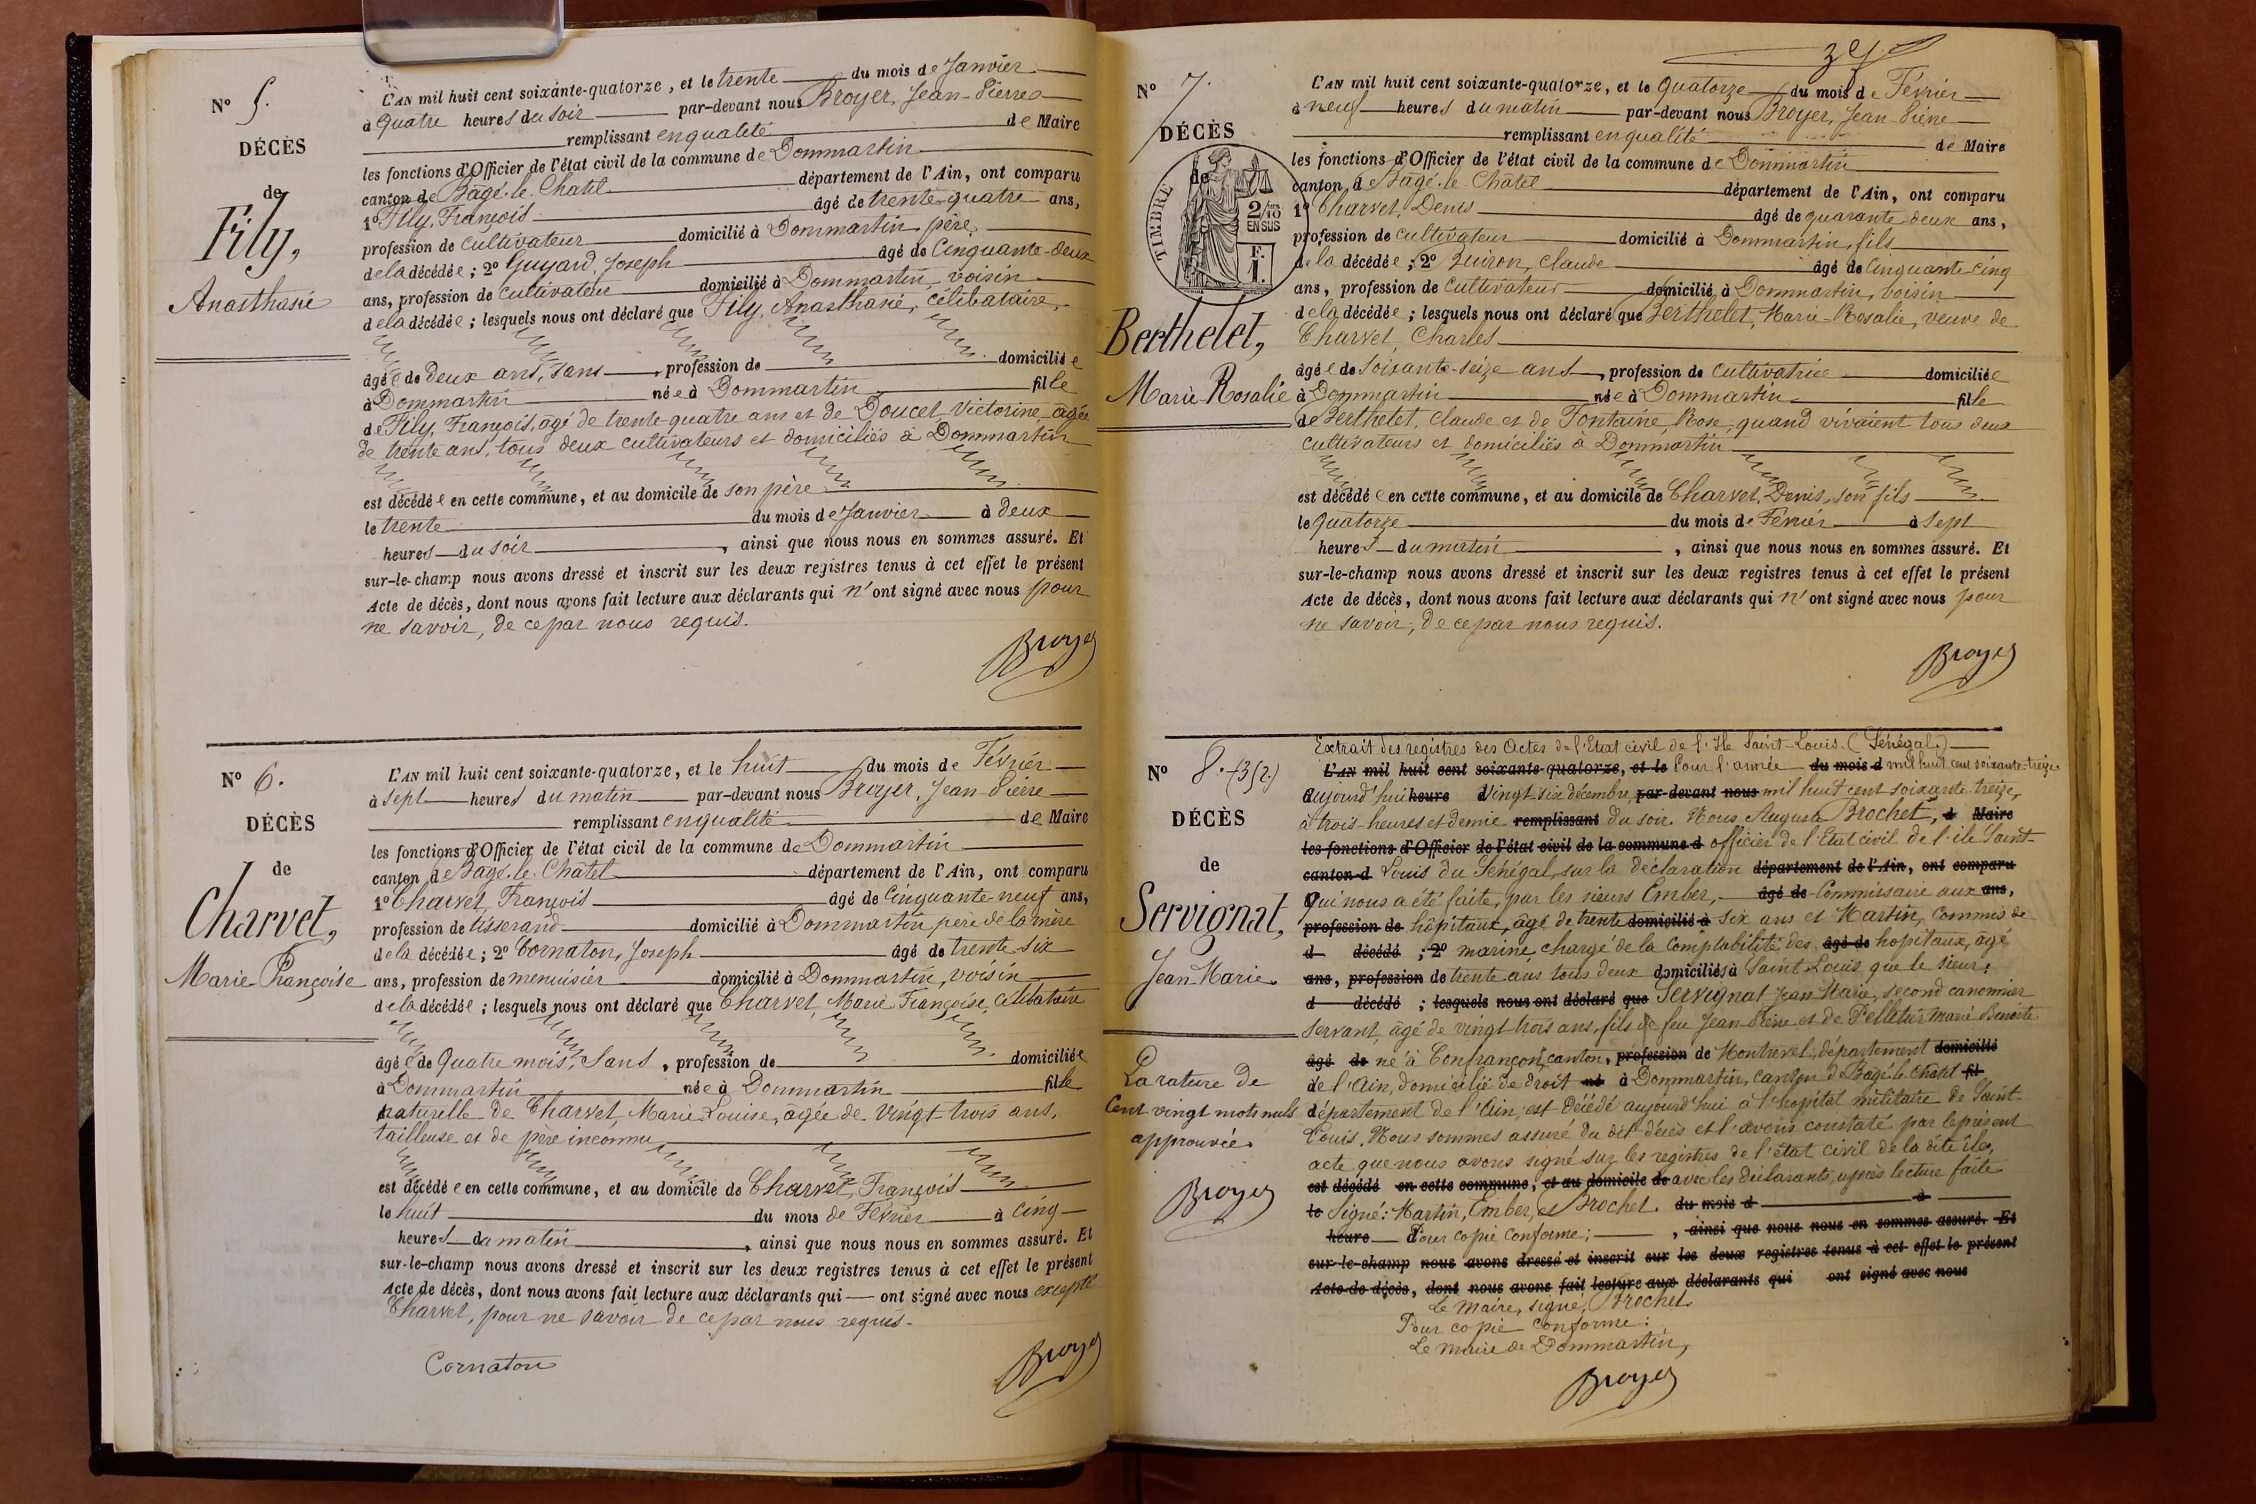 N° 5.
DÉCÈS
de
Fily,
Anasthasie
L'AN mil huit cent soixante-quatorze, et le trente du mois de Janvier
à quatre heures du soir par-devant nous Broyer, Jean-Pierre
remplissant en qualité de Maire
les fonctions d'Officier de l'état civil de la commune de Dommartin
canton de Bâgé-le-Châtel département de l'Ain, ont comparu
1° Fily, François âgé de trente-quatre ans,
profession de cultivateur domicilié à Dommartin, père
de la décédée ; 2° Guyard, Joseph âgé de Cinquante-deux
ans, profession de cultivateur domicilié à Dommartin, voisin
de la décédée ; lesquels nous ont déclaré que Fily, Anasthasie, célibataire,
âgée de deux ans, sans , profession de domiciliée
à Dommartin née à Dommartin fille
de Fily, François, âgé de trente-quatre ans et de Doucet, Victorine âgée
de trente ans, tous deux cultivateurs et domiciliés à Dommartin
est décédée en cette commune, et au domicile de son père
le trente du mois de Janvier à deux
heures du soir , ainsi que nous nous en sommes assuré. Et
sur-le-champ nous avons dressé et inscrit sur les deux registres tenus à cet effet le présent
Acte de décès, dont nous avons fait lecture aux déclarants qui n'ont signé avec nous pour
ne savoir, de ce par nous requis.
Broyer
N° 6.
DÉCÈS
de
Charvet,
Marie-Françoise
L'AN mil huit cent soixante-quatorze, et le huit du mois de Février
à sept heures du matin par-devant nous Broyer, Jean-Pierre
remplissant en qualité de Maire
les fonctions d'Officier de l'état civil de la commune de Dommartin
canton de Bâgé-le-Châtel département de l'Ain, ont comparu
1° Charvet, François âgé de Cinquante-neuf ans,
profession de tisserand domicilié à Dommartin, père de la mère
de la décédée ; 2° Cornaton, Joseph âgé de trente-six
ans, profession de menuisier domicilié à Dommartin, voisin
de la décédée ; lesquels nous ont déclaré que Charvet, Marie Françoise, célibataire
âgée de Quatre mois, Sans , profession de domiciliée
à Dommartin née à Dommartin fille
naturelle de Charvet, Marie Louise, agée de vingt trois ans,
tailleuse et de père inconnu,
est décédée en cette commune, et au domicile de Charvet, François
le huit du mois de Février à cinq
heures du matin , ainsi que nous nous en sommes assuré. Et
sur-le-champ nous avons dressé et inscrit sur les deux registres tenus à cet effet le présent
Acte de décès, dont nous avons fait lecture aux déclarants qui ont signé avec nous excepté
Charvet, pour ne savoir de ce par nous requis.
Cornaton
Broyer
N° 7.
DÉCÈS
de
TIMBRE
2/10 EN SUS
F. 1.
Berthelet,
Marie-Rosalie
L'AN mil huit cent soixante-quatorze, et le quatorze du mois de Février
à neuf heures du matin par-devant nous Broyer, Jean Pierre
remplissant en qualité de Maire
les fonctions d'Officier de l'état civil de la commune de Dommartin
canton de Bâgé-le-Châtel département de l'Ain, ont comparu
1° Charvet, Denis âgé de quarante-deux ans,
profession de cultivateur domicilié à Dommartin, fils
de la décédée ; 2° Guiron, Claude âgé de Cinquante-cinq
ans, profession de cultivateur domicilié à Dommartin, voisin
de la décédée ; lesquels nous ont déclaré que Berthelet, Marie-Rosalie, veuve de
Charvet, Charles
âgée de soixante-seize ans , profession de cultivatrice domiciliée
à Dommartin née à Dommartin fille
de Berthelet, Claude et de Fontaine, Rose, quand vivaient tous deux
cultivateurs et domiciliés à Dommartin
est décédée en cette commune, et au domicile de Charvet, Denis, son fils
le quatorze du mois de Février à sept
heures du matin , ainsi que nous nous en sommes assuré. Et
sur-le-champ nous avons dressé et inscrit sur les deux registres tenus à cet effet le présent
Acte de décès, dont nous avons fait lecture aux déclarants qui n'ont signé avec nous pour
ne savoir, de ce par nous requis.
Broyer
N° 8.
DÉCÈS
de
Servignat,
Jean-Marie.
La rature de
Cent vingt mots nuls
approuvée.
Broyer
Extrait des registres des Actes de l'Etat civil de l'Ile Saint-Louis. (Sénégal.)
L'AN mil huit cent soixante-quatorze, et le Pour l'année du mois d mil huit cent soixante-treize.
Aujourd'hui heure vingt-six décembre par-devant nous mil huit cent soixante treize,
à trois heures et demie remplissant du soir. Nous Auguste Brochet, d Maire
les fonctions d'Officier de l'état civil de la commune d officier de l'Etat civil de l'île Saint-
canton d Louis du Sénégal, sur la déclaration département de l'Ain, ont comparu
qui nous a été faite, par les sieurs Ember, âgé de Commissaire aux ans,
profession de hôpitaux, âgé de trente domicilié à six ans et Martin, Commis de
d décédé ; 2° marine chargé de la comptabilité des âgé de hopitaux, âgé
ans, profession de trente ans tous deux domiciliés à Saint Louis, que le sieur,
d décédé ; lesquels nous ont déclaré que Servignat Jean Marie, second canonnier
servant, âgé de vingt-trois ans, fils de feu Jean Pierre et de Pelletier Marie Benoite
âgé de né à Confrançon, canton, profession de Montrevel, département domicilié
de l'Ain, domicilié de droit né à Dommartin, canton d Bâgé-le-Châtel fil
département de l'Ain, est décédé aujourd'hui à l'hopital militaire de Saint-
Louis. Nous sommes assuré du dit décès et l'avons constaté par le présent
acte que nous avons signé sur les registres de l'état civil de la dite île,
est décédé en cette commune, et au domicile de avec les déclarants, après lecture faite
le Signé: Martin, Ember, et Brochet. du mois d à
heure Pour copie conforme; , ainsi que nous nous en sommes assuré. Et
sur-le-champ nous avons dressé et inscrit sur les deux registres tenus à cet effet le présent
Acte de décès, dont nous avons fait lecture aux déclarants qui ont signé avec nous
Le Maire, signé, Brochet
Pour copie conforme:
Le maire de Dommartin,
Broyer